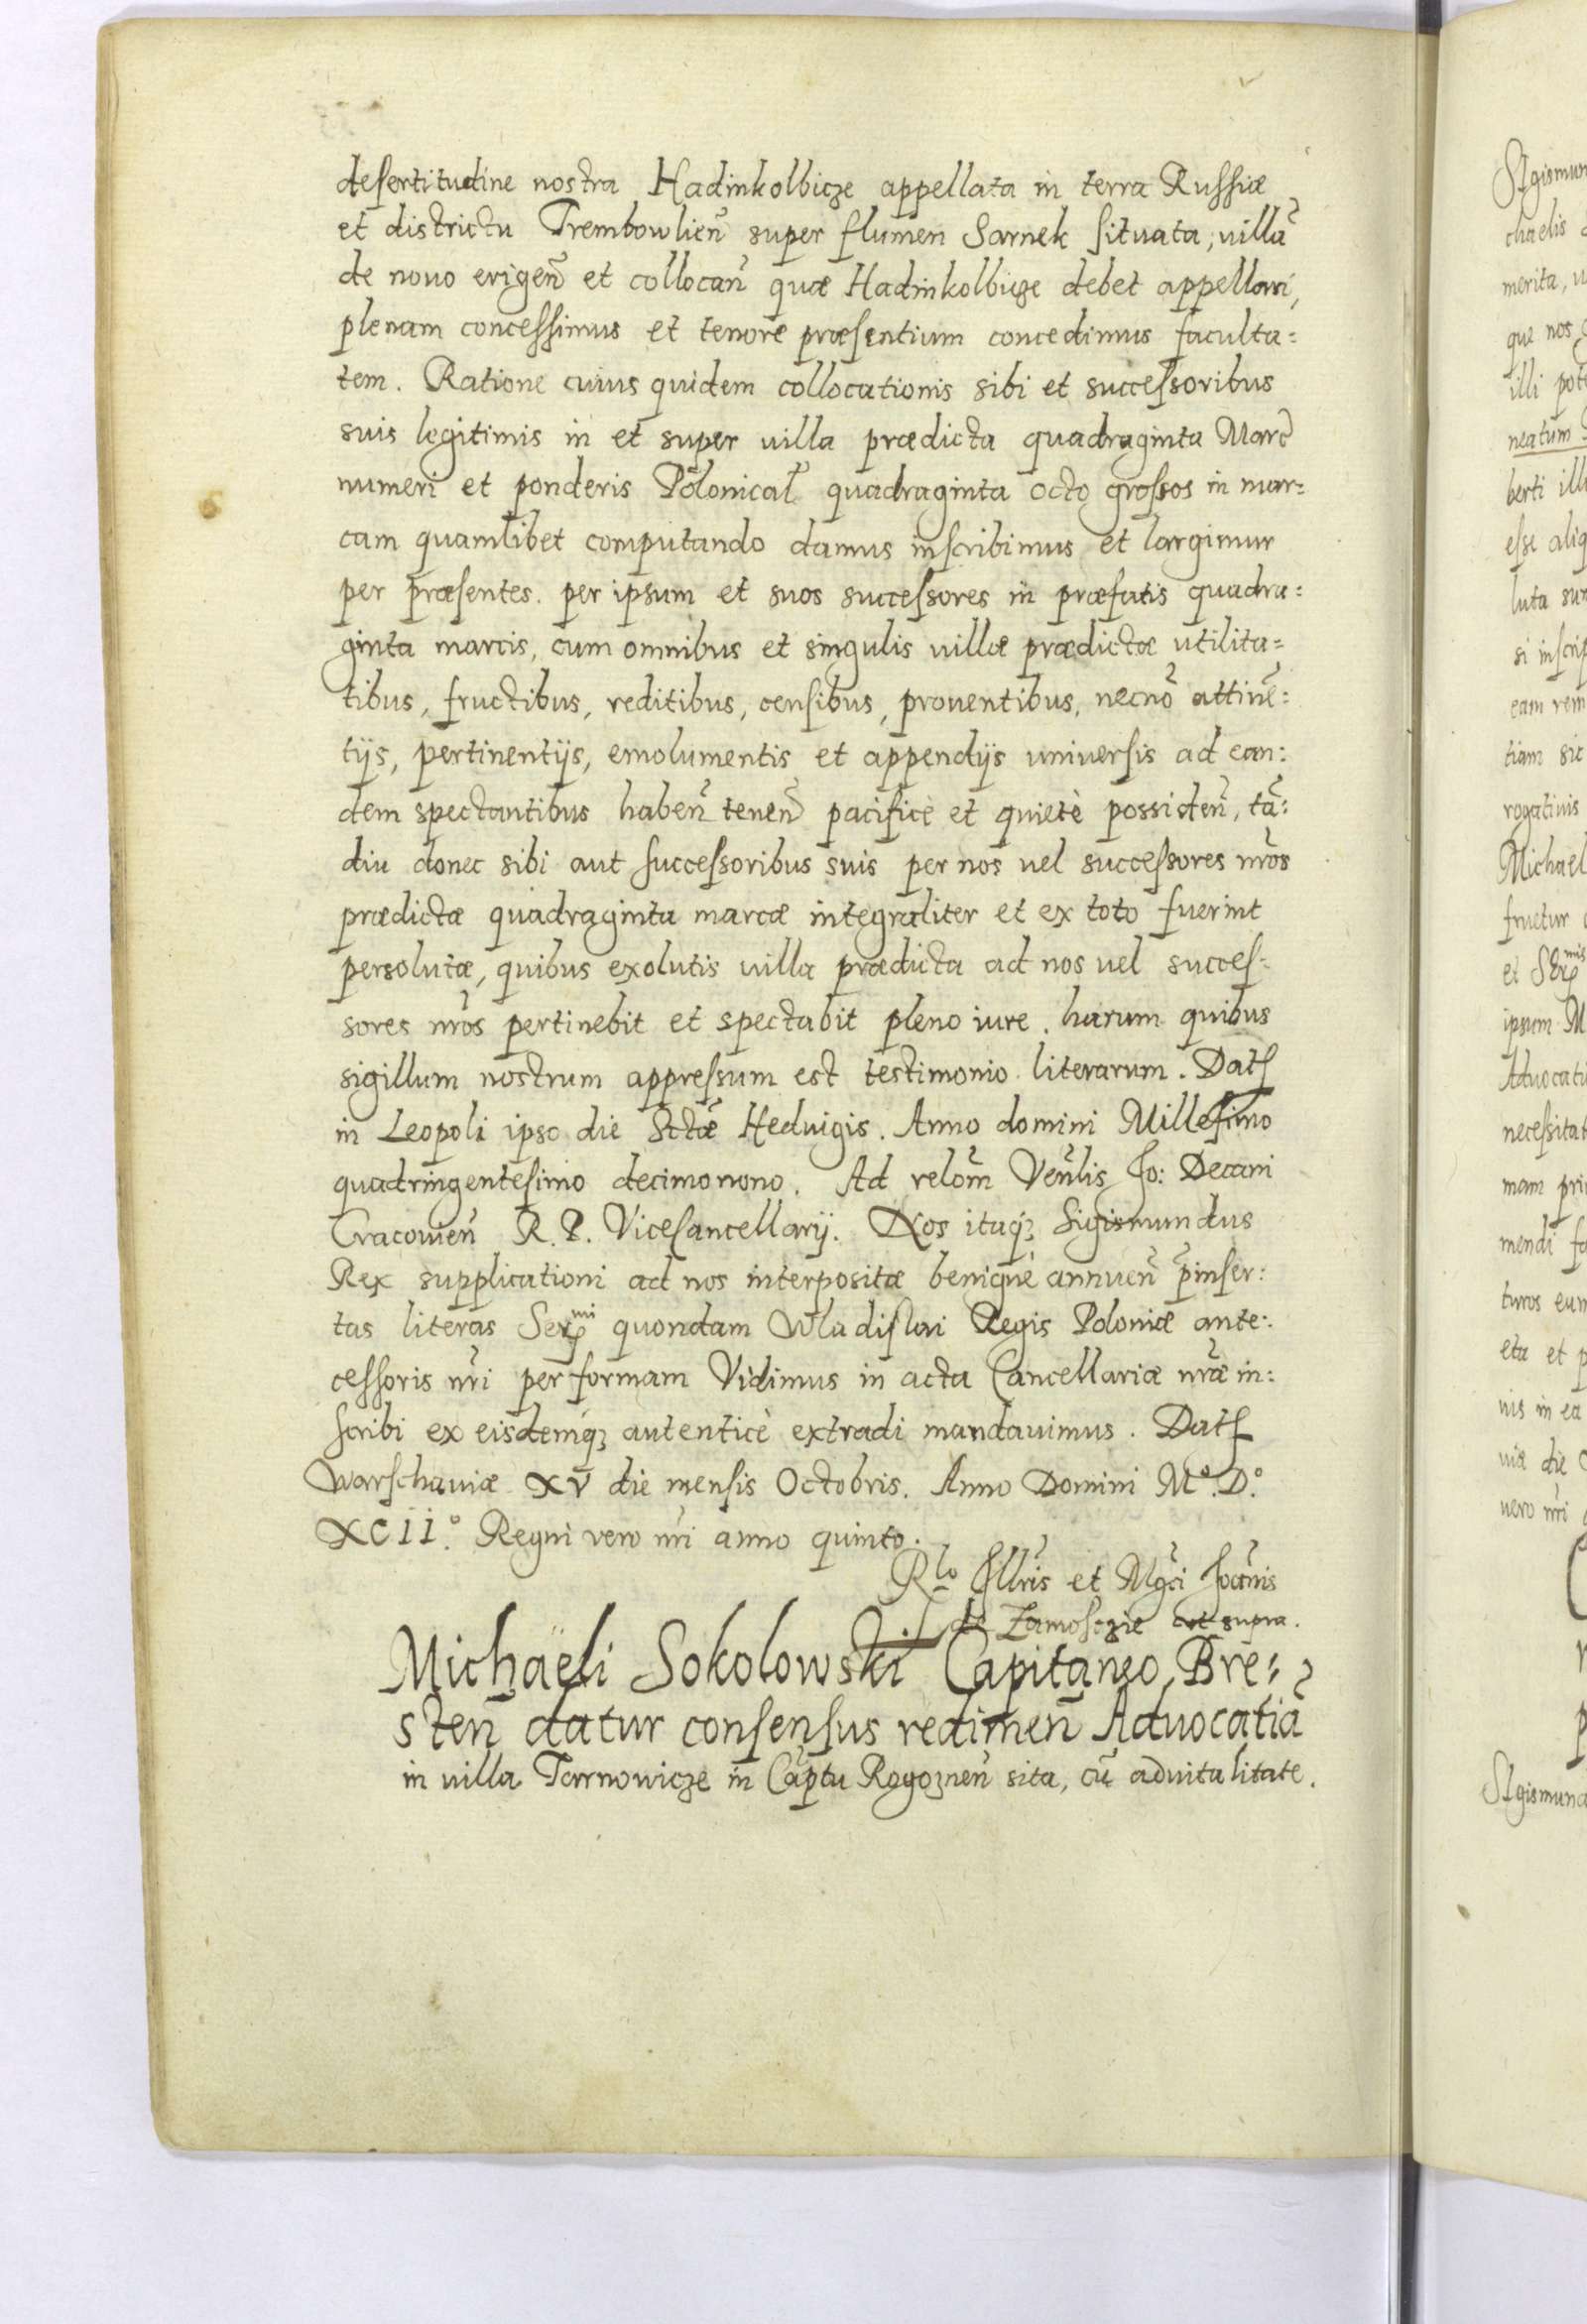 desertitudine nostra Hadinkolbicze appellata in terra Russiæ
et districtu Trembowlien̄ super flumen Sarnek situata, villā
de nouo erigen̄ et collocan̄ quæ Hadinkolbicze debet appellari,
plenam concessimus et tenore præsentium concedimus faculta=
tem. Ratione cuius quidem collocationis sibi et successoribus
suis legitimis in et super villa prædicta quadraginta Marc̄
numeri et ponderis Polonical̄ quadraginta octo grossos in mar=
cam quamlibet computando damus inscribimus et largimur
per præsentes. per ipsum et suos successores in præfatis quadra=
ginta marcis, cum omnibus et singulis villæ prædictæ utilita=
tibus, fructibus, reditibus, censibus, prouentibus, necnō attinē=
tijs, pertinentijs, emolumentis et appendijs uniuersis ad ean=
dem spectantibus haben̄ tenen̄ pacificè et quietè possiden̄, tā=
diu donec sibi aut successoribus suis per nos uel successores nr̄os
prædictæ quadraginta marcæ integraliter et ex toto fuerint
persolutæ, quibus exolutis villa prædicta ad nos uel succes=
sores nr̄os pertinebit et spectabit pleno iure. harum quibus
sigillum nostrum appressum est testimonio literarum. Dat̄
in Leopoli ipso die Sctǣ Heduigis. Anno domini Millesimo
quadringentesimo decimonono. Ad relom̄ Ven̄lis Jo: Decani
Cracouien̄ R. P. Vicecancellarij. Nos itaq₃ Sigismundus
Rex supplicationi ad nos interpositæ benignè annuen̄ p̄inser=
tas literas Ser^mi quondam Wladislai Regis Poloniæ ante=
cessoris nr̄i per formam Vidimus in acta Cancellariæ nr̄æ in=
scribi ex eisdemq₃ autenticè extradi mandauimus. Dat̄
Warschauiæ XV die mensis Octobris. Anno Domini M°. D.°
XCII.° Regni vero nr̄i anno quinto.
R^lo Jllr̄is et Mgc̄i Joan̄is
de Zamosczie ut supra.
Michaëli Sokolowski Capitaneo Bre=
sten̄ datur consensus redimen̄ Aduocatiā
in uilla Tarnowicze in Cap̄tu Rogoznen̄ sita, cū aduitalitate.